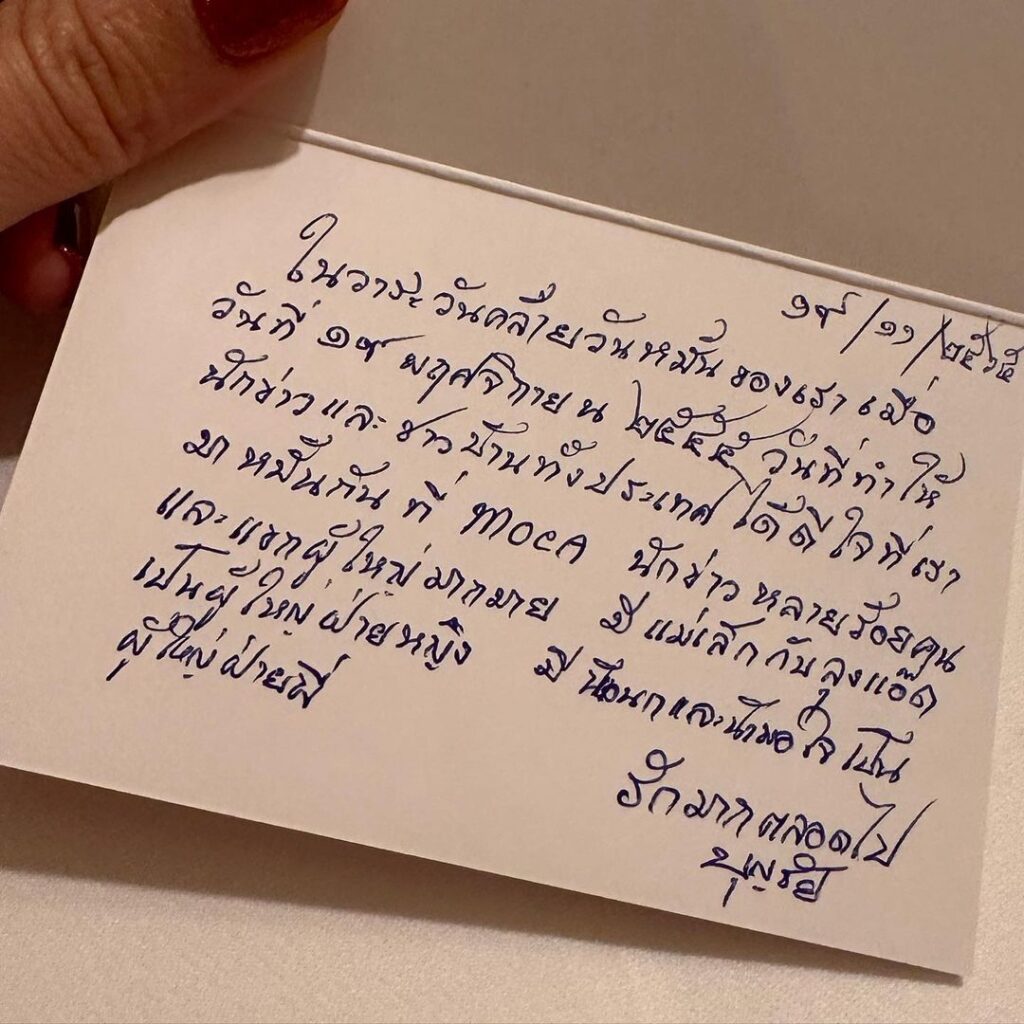 ๑๙/๑๑/๒๕๖๕
ในวาระวันคล้ายวันหมั้นของเราเมื่อ
วันที่ ๑๙ พฤศจิกายน ๒๕๕๕ วันที่ทำให้
นักข่าวและชาวบ้านทั้งประเทศได้ดีใจที่เรา
มาหมั้นกันที่ MOCA นักข่าวหลายร้อยคน
และแขกผู้ใหญ่มากมาย มีแม่เล็กกับลุงแอ๊ด
เป็นผู้ใหญ่ฝ่ายหญิง มี และน้าพอใจเป็น
ผู้ใหญ่ฝ่ายพี่
รักมากตลอดไป
บุญชัย